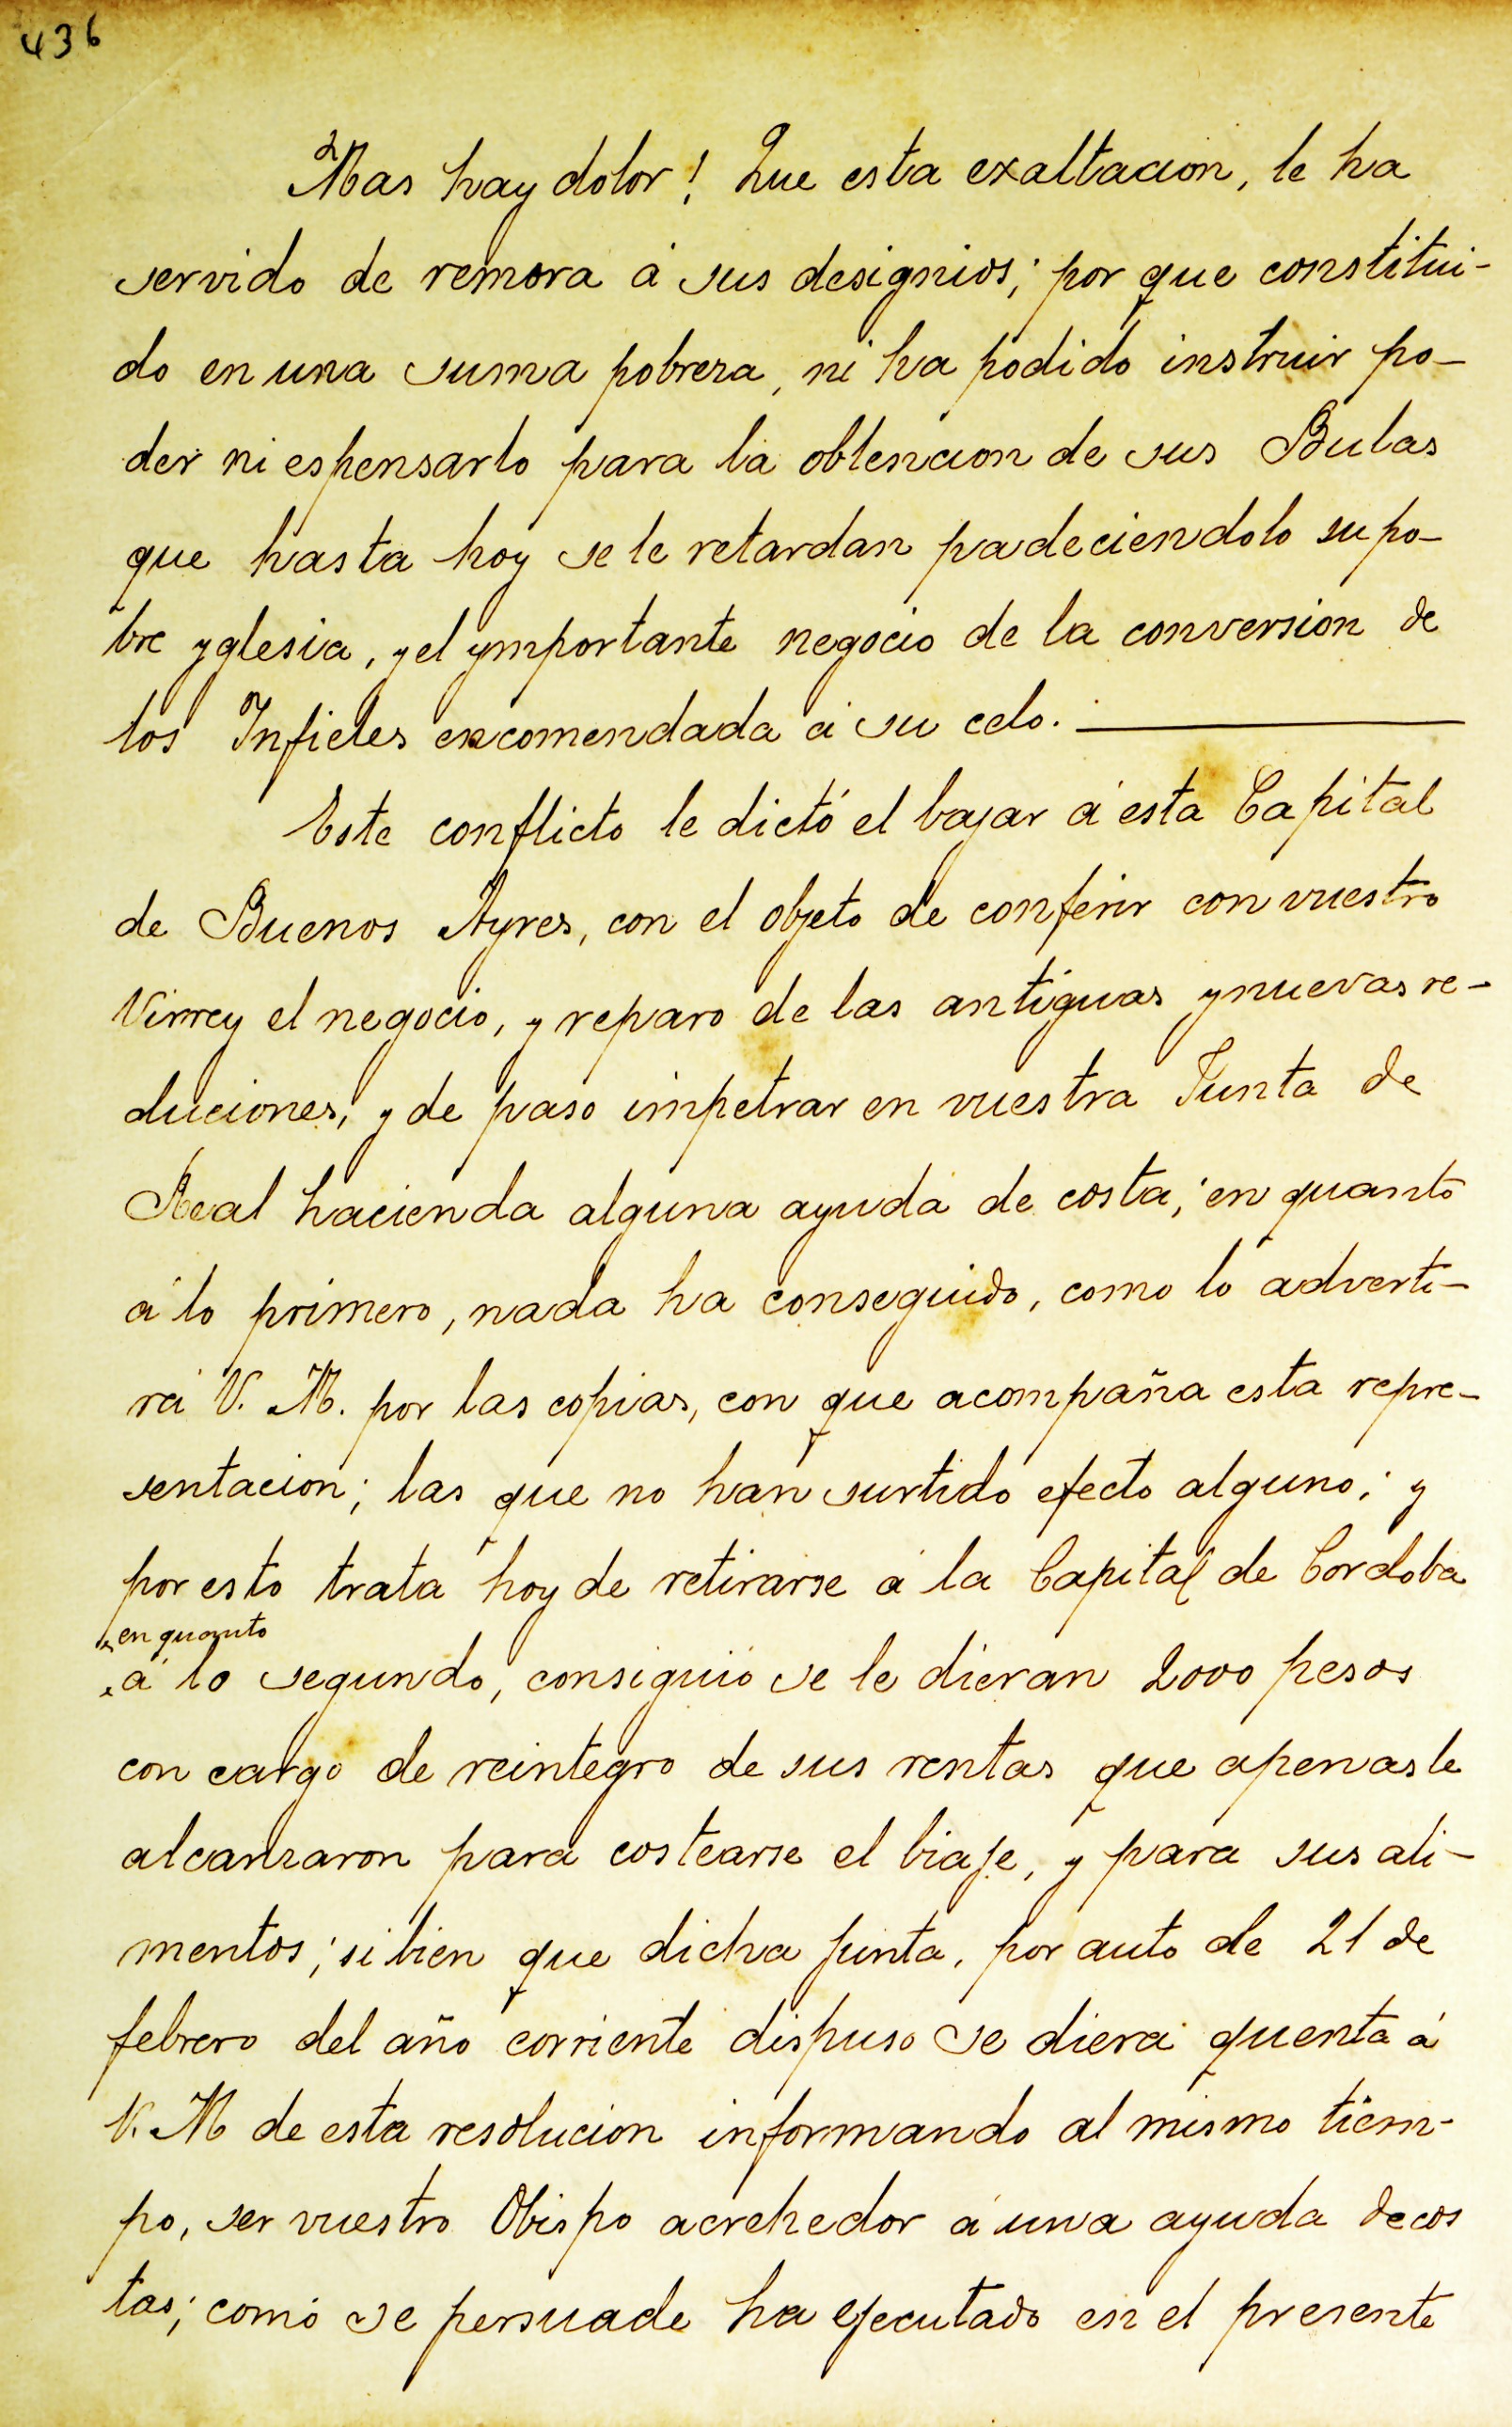 436
Mas hay dolor! Que esta exaltacion, le ha
servido de remora á sus designios; por que constitui-
do en una suma pobreza, ni ha podido instruir po-
der ni espensarlo para la obtencion de sus Bulas
que hasta hoy se le retardan padeciendolo su po-
bre yglesia, y el ymportante negocio de la conversion de
los Infieles encomendada á su celo.
Este conflicto le dictó el bajar á esta Capital
de Buenos Ayres, con el objeto de conferir con vuestro
Virrey el negocio, y reparo de las antiguas y nuevas re-
duciones, y de paso impetrar en vuestra Junta de
Real hacienda alguna ayuda de costa; en quanto
á lo primero, nada ha conseguido, como lo adverti-
rá V. M. por las copias, con que acompaña esta repre-
sentacion; las que no han surtido efecto alguno; y
por esto trata hoy de retirarse á la Capital de Cordoba
en quanto
á lo segundo, consiguió se le dieran 2000 pesos
con cargo de reintegro de sus rentas que apenas le
alcanzaron para costearse el biaje, y para sus ali-
mentos; si bien que dicha junta, por auto de 21 de
febrero del año corriente dispuso se diera quenta á
V. M de esta resolucion informando al mismo tiem-
po, ser vuestro Obispo acrehedor á una ayuda de cos
tas; como se persuade ha ejecutado en el presente